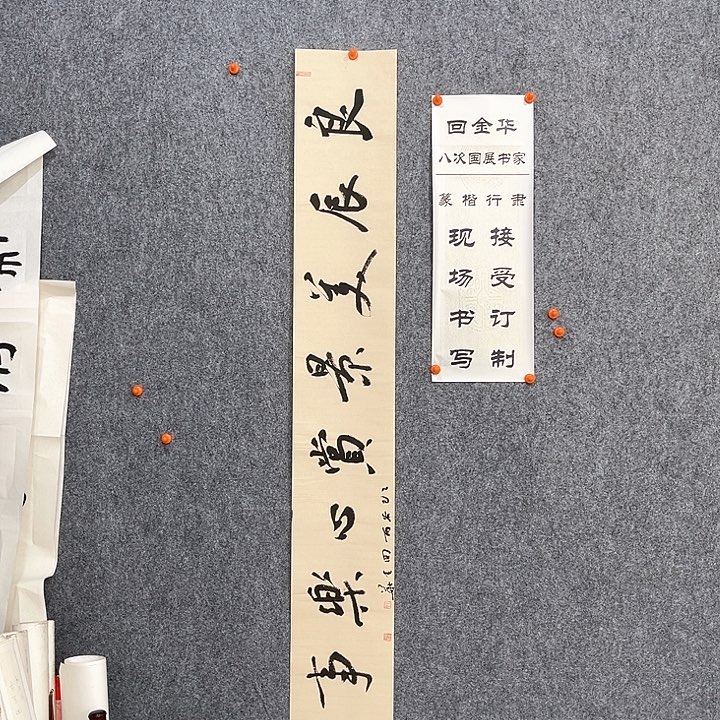 良辰美景賞心樂事
回金华
八次国展书家
篆楷行隶
接受订制
现场书写